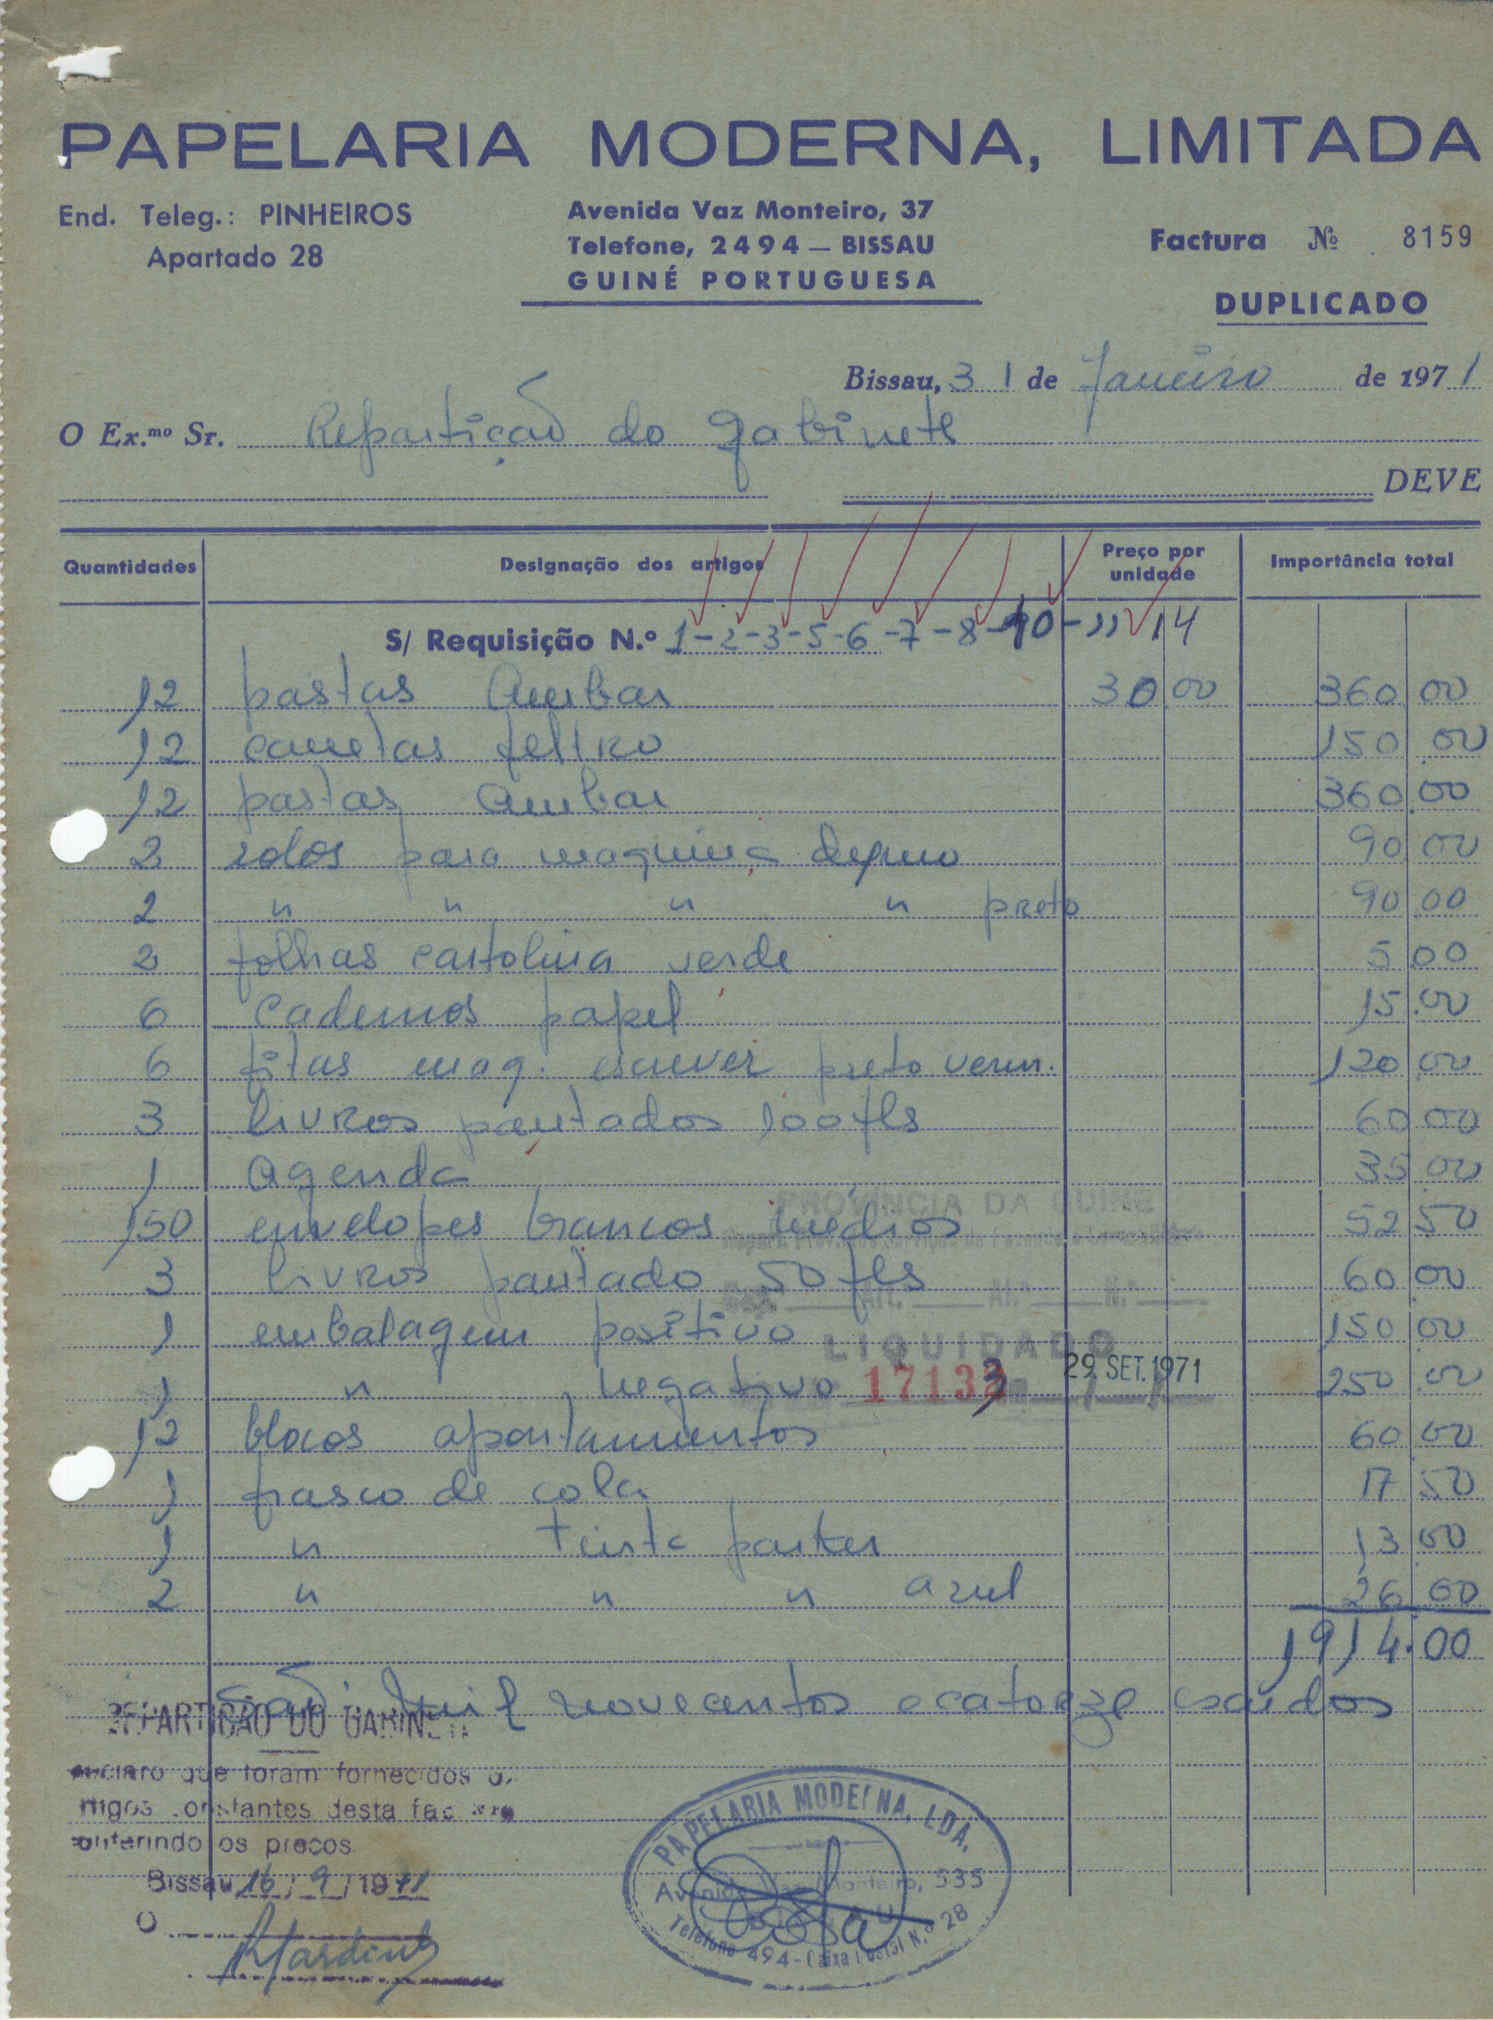 PAPELARIA MODERNA, LIMITADA
End. Teleg.: PINHEIROS
Apartado 28
Avenida Vaz Monteiro, 37
Telefone, 2494 — BISSAU
GUINÉ PORTUGUESA
Factura № 8159
DUPLICADO
Bissau, 31 de Janeiro de 1971
O Ex.mo Sr. Repartição do gabinete
DEVE
Quantidades Designação dos artigos Preço por unidade Importância total
S/ Requisição N.º 1-2-3-5-6-7-8-10-11 14
12 pastas Ambar 30.00 360.00
12 canetas feltro 150.00
12 pastas Ambar 360.00
2 rolos para maquina 90.00
2 " " " " preto 90.00
2 folhas cartolina verde 5.00
6 cadernos papel 15.00
6 fitas maq. escrever preto verm. 120.00
3 livros pautados 100 fls 60.00
1 agenda 35.00
150 envelopes brancos médios 52.50
3 livros pautado 50 fls 60.00
1 embalagem positivo 150.00
1 " negativo 250.00
12 blocos apontamentos 60.00
1 frasco de cola 17.50
1 " tinta parker 13.00
2 " " " azul 26.00
1914.00
São: mil novecentos e catorze escudos
PROVÍNCIA DA GUINÉ
LIQUIDADO
17133 29. SET. 1971
REPARTIÇÃO DO GABINETE
que foram fornecidos
constantes desta
os preços
Bissau 16/9/1971
O
PAPELARIA MODERNA, LDA.
Avenida Vaz Monteiro, 535
Telefone 494 - Caixa Postal N.º 28